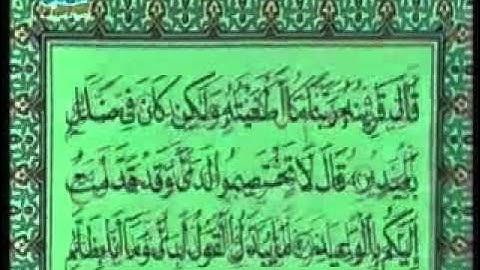 قَالَ قَرِينُهُ رَبَّنَا مَا أَطْغَيْتُهُ وَلَٰكِن كَانَ فِي ضَلَالٍ
بَعِيدٍ قَالَ لَا تَخْتَصِمُوا لَدَيَّ وَقَدْ قَدَّمْتُ
إِلَيْكُم بِالْوَعِيدِ مَا يُبَدَّلُ الْقَوْلُ لَدَيَّ وَمَا أَنَا بِظَلَّامٍ